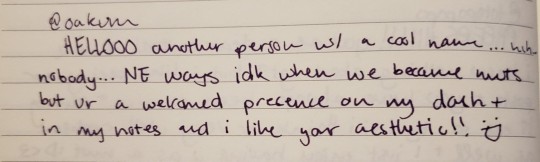 @oakum
HELLOOO another person w/ a cool name... huh
nobody... NE ways idk when we became muts
but ur a welcomed presence on my dash +
in my notes and i like your aesthetic!! :)